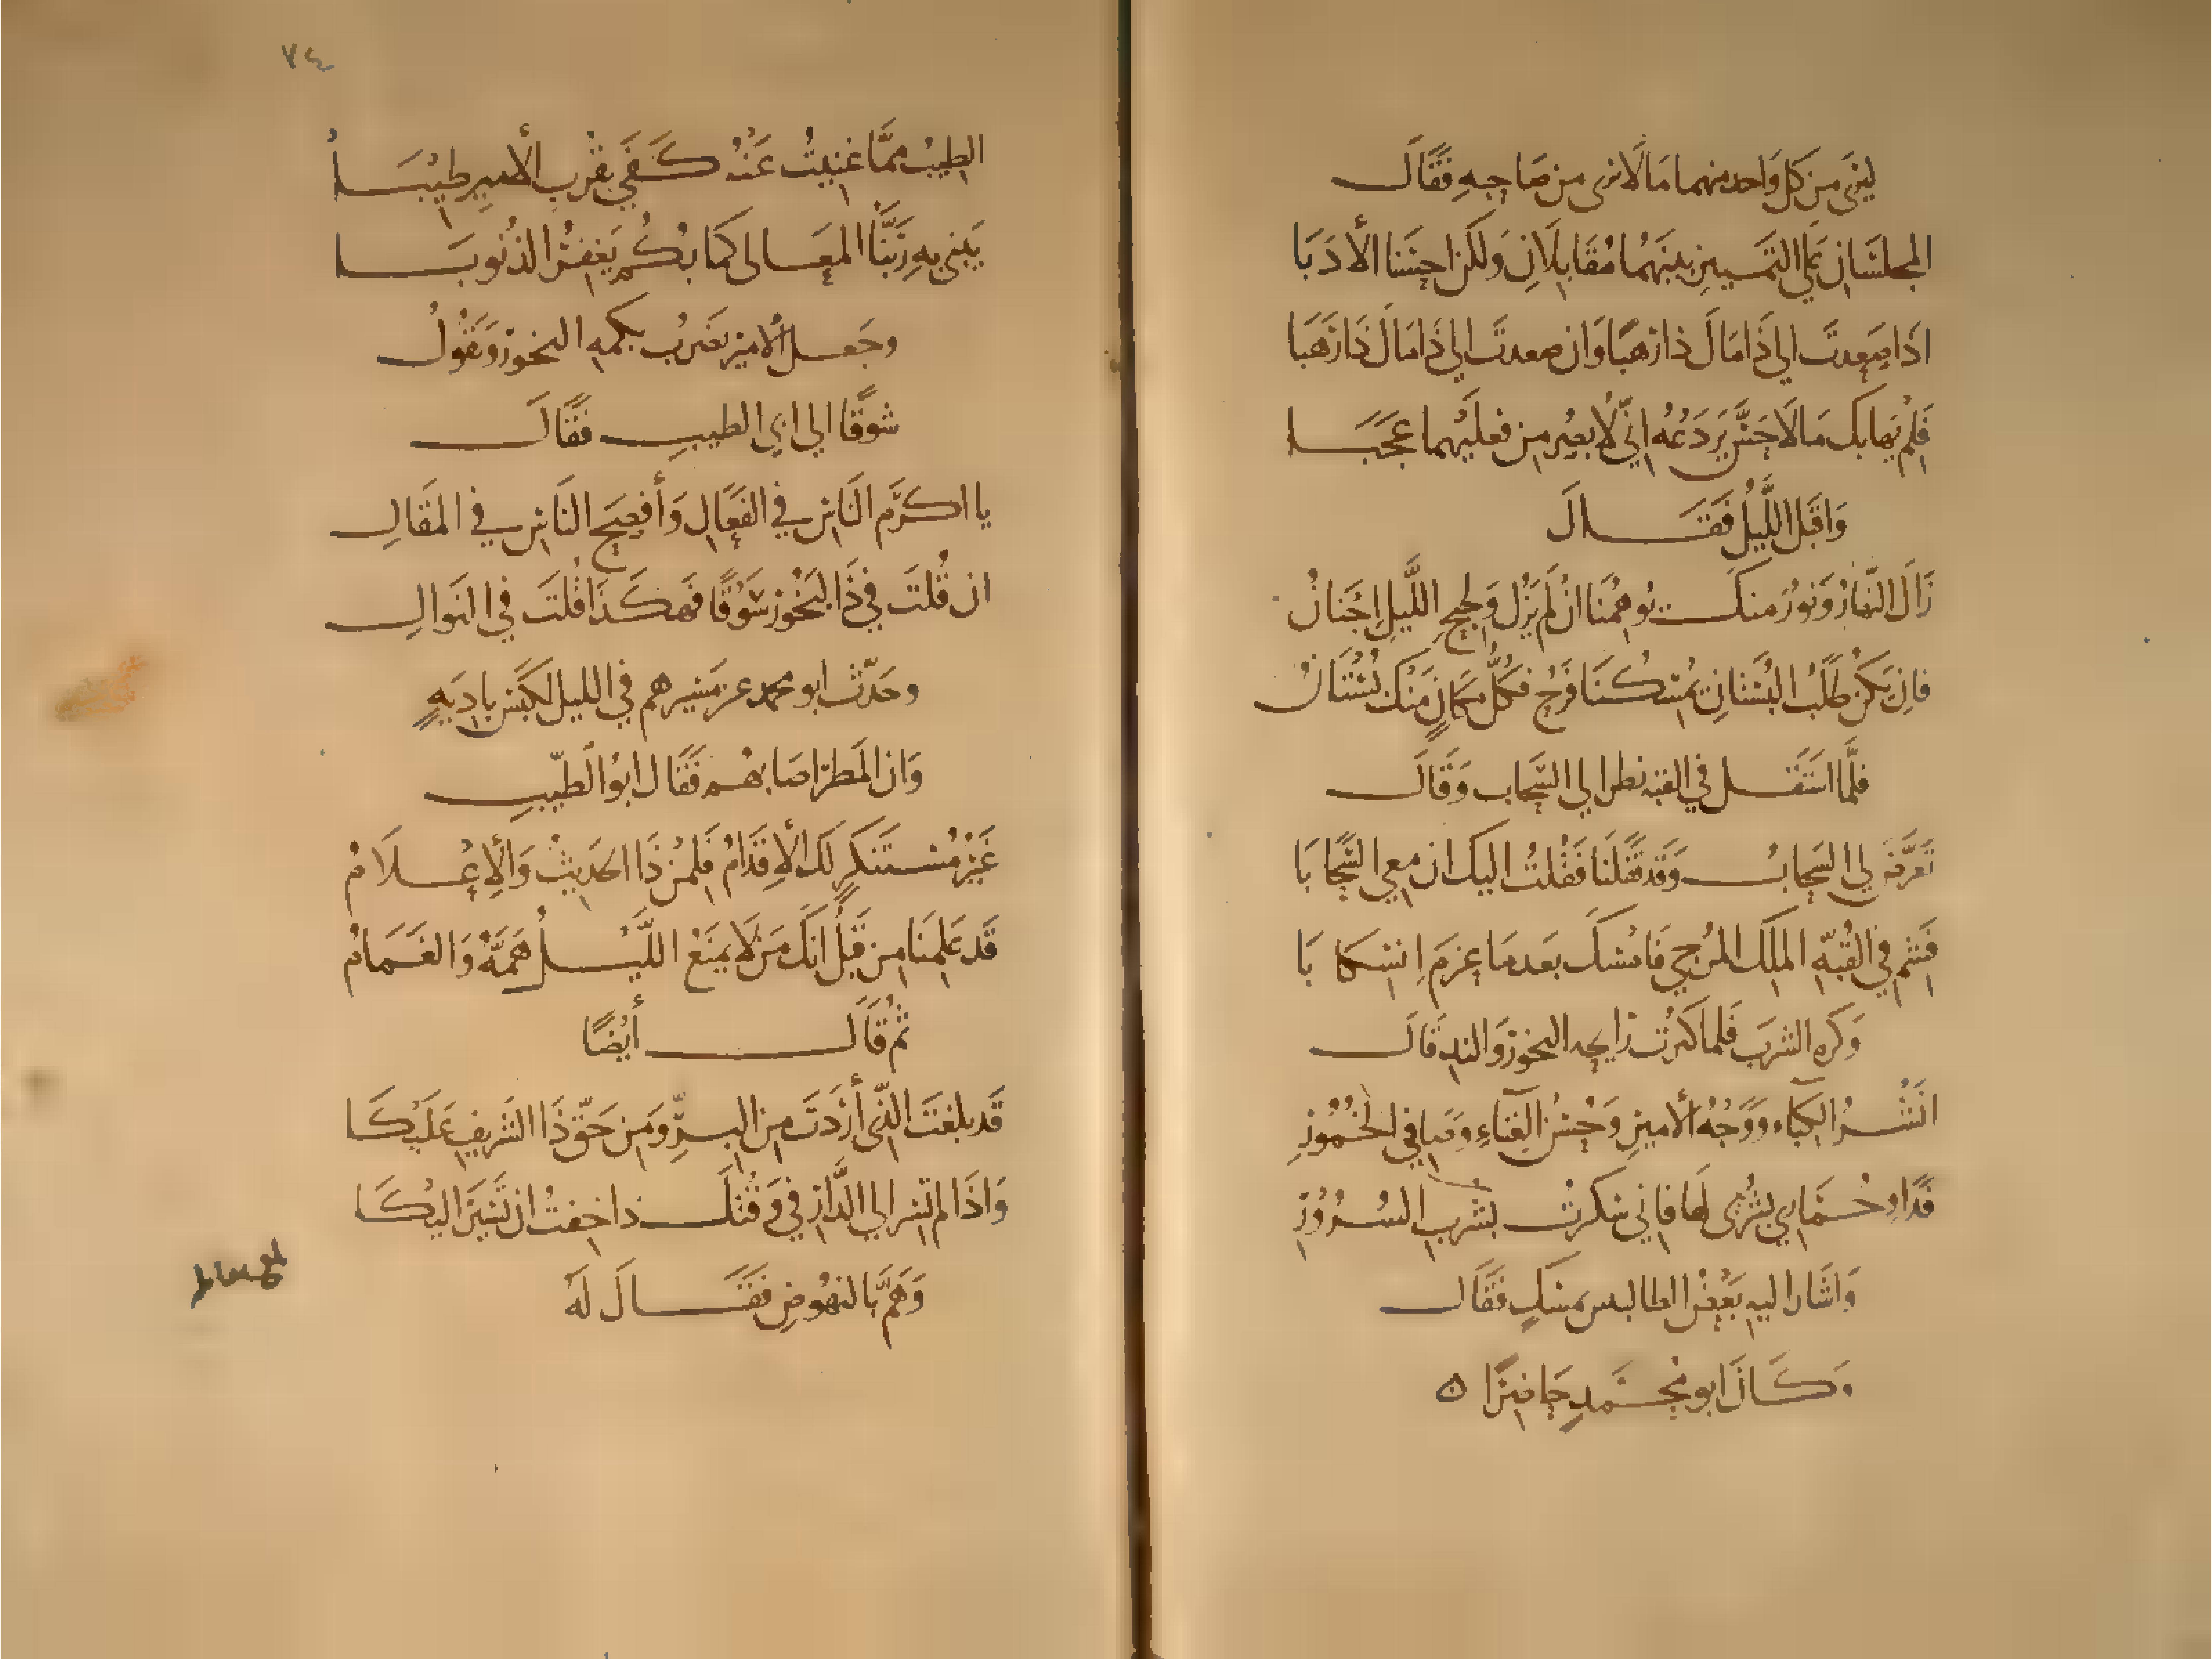 ليرى من كل واحد منهما ما لا يرى من صاحبه فَقَالَ
المجلسَان عَلى التمَييزِ بينَهُما مُقَابلانِ وَلكن احسَنَا الأدَبَا
اذَا صَعِدتَ الى ذَا مَالَ ذا رَهبًا وَان صعدتَ الى ذَا مَالَ ذَا رَهَبَا
فَلِمْ يَهابكَ مَا لَا حسَّ يَردَعُهُ انّي لأبصِرُ من فعلَيهما عَجَبَا
وَاقبَل اللَّيلُ فَقَالَ
زَالَ النّهَارُ وَنورٌ منكَ يُوهِمُنَا انْ لَم يَزُل وَلجنحِ اللَّيلِ اجنانُ
فانِ يَكُن طَلَبُ البُسْتانِ يُمْسكُنَا فَرُحْ فكُلُّ مكَانٍ مِنْكَ بُسْتَانُ
فلمَّا استَقَل في القبّة نظر الى السَّحاب وَقَالَ
تَعَرَّضَ لي السَحابُ وَقَد قَفَلنَا فَقُلتُ اليكَ ان مَعي السَّحَابَا
فَشِم في القُبّةِ الملَك المُرَجّى فَامسَكَ بَعدمَا عزمَ انسِكَابَا
وَكره الشربَ فلما كثرت رايحة البخور وَالند قَالَ
انَشْرُ الكِبَاء وَوَجْهُ الأميرِ وَحُسْنُ الغِنَاءِ وصَافي الخُمُورِ
فَدَاوِ خُمَاري بشُرْبي لَها فاني سَكرتُ بشربِ السُرُورِ
وَاشَار اليه بَعْضُ الطالبيين بمسكٍ فَقَالَ
وَكَانَ ابو محَمدٍ حَاضِرًا ه
٧٤
الطيبُ ممَّا غنِيتُ عَنْهُ كَفَى بقُربِ الأميرِ طِيبَا
يَبني بِهِ رَبُّنَا المعَالى كمَا بكُم يَغفِرُ الذنُوبَا
وجَعل الأمير يضربُ بكمه البخور وَيَقُولُ
شوقًا الى ابي الطيبِ فَقَالَ
يا اكرَمَ النّاسِ في الفَعَالِ وَأفصَحَ النَاسِ في المقَالِ
ان قُلتَ في ذَا البَخُور سَوْقًا فَهكَذَا قُلتَ في النَوالِ
وحَدّث ابو محمد عن مَسيرهم في الليل لكبسِ باديَةٍ
وَان المَطر اصَابهُم فَقَال ابوُ الطّيبِ
غَيْرُ مُسْتَنكَرٍ لَكَ الإقدَامُ فَلِمَن ذَا الحَدِيثُ وَالإعْلَامُ
قَد عَلِمنَا مِن قَبلُ انكَ مَن لَا يمنَعُ اللَّيْلُ هَمَّهُ وَالغَمَامُ
ثُمّ قَالَ أيْضًا
قَد بلَغتَ الذّي أرَدتَ مِنَ البِرِّ ومَن حَقّ ذَا الشَريفِ عَلَيْكَا
وَاذَا لم تَسِر الى الدَّارِ في وَقْتكَ ذا خفتُ ان تَسِيرَ اليْكَا
وَهَمَّ بالنهُوضِ فقَالَ لهُ